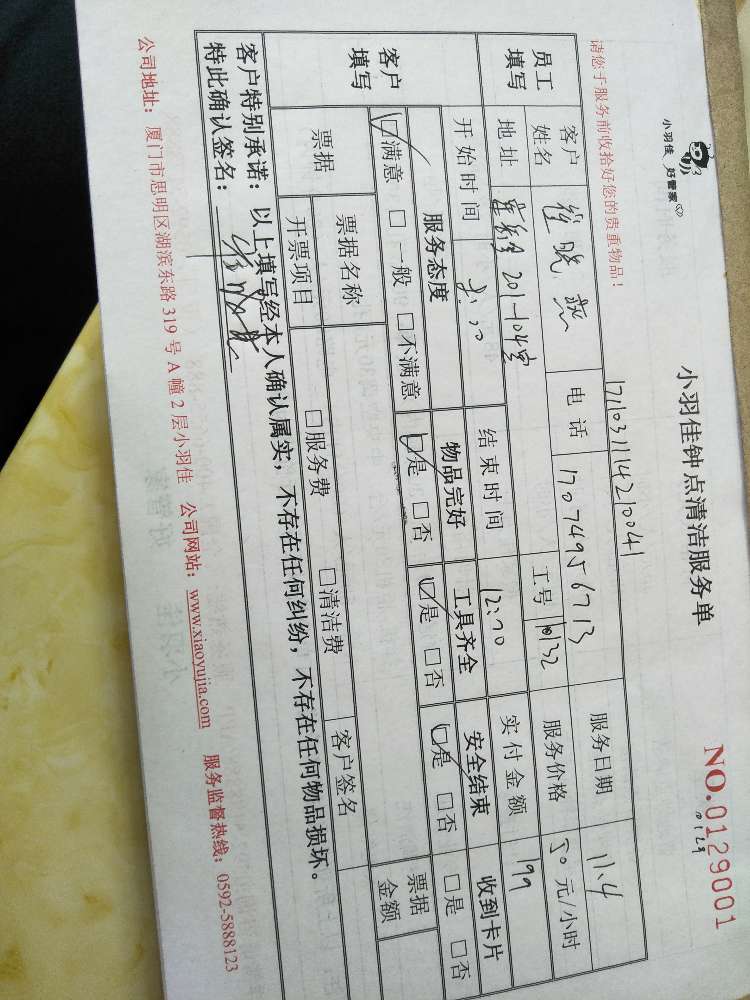 小羽佳 好管家
小羽佳钟点清洁服务单
NO.0129001
0129
请您于服务前收拾好您的贵重物品!
171031114210041
员工填写
客户姓名 晓 电话 17074956713 服务日期 11.4
地址 201-104室 工号 1032 服务价格 50 元/小时
开始时间 8:00 结束时间 12:00 实付金额 199
客户填写
服务态度 物品完好 工具齐全 安全结束 收到卡片
☑满意 □一般 □不满意 ☑是 □否 ☑是 □否 ☑是 □否 □是 □否
票据 票据名称 客户签名 票据金额
开票项目 □服务费 □清洁费
客户特别承诺:以上填写经本人确认属实,不存在任何纠纷,不存在任何物品损坏。
特此确认签名:
公司地址:厦门市思明区湖滨东路 319 号 A 幢 2 层小羽佳 公司网站:www.xiaoyujia.com 服务监督热线:0592-5888123